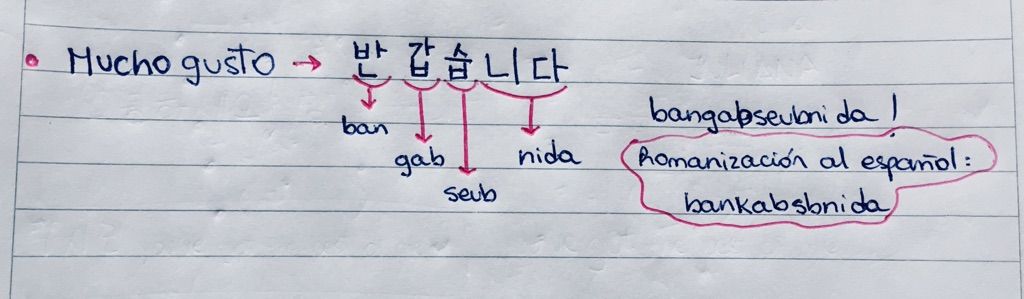 • Mucho gusto → 반 갑 습 니 다
ban
gab
seub
nida
bangabseubnida /
Romanización al español:
bankabsbnida